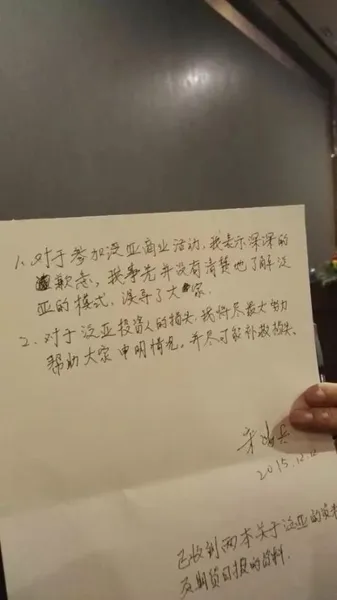 1. 对于参加泛亚商业活动，我表示深深的
歉意，我事先并没有清楚地了解泛
亚的模式，误导了大家。
2. 对于泛亚投资人的损失，我将尽最大努力
帮助大家申明情况，并尽可能补救损失。
宋鸿兵
2015.12.12
已收到两本关于泛亚的资料
及期货日报的资料.